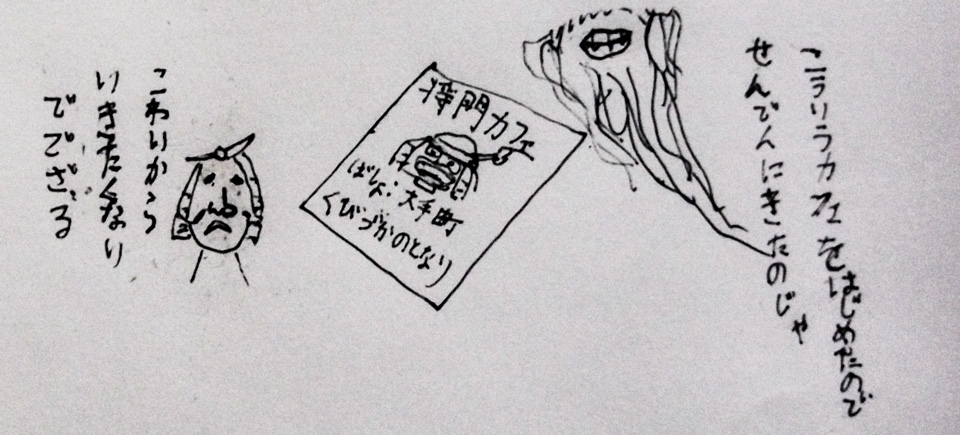 こうりうカフェをはじめたので
せんでんにきたのじゃ
将門カフェ
ばしょ:大手町
くびづかのとなり
こわいから
いきたくない
でござる